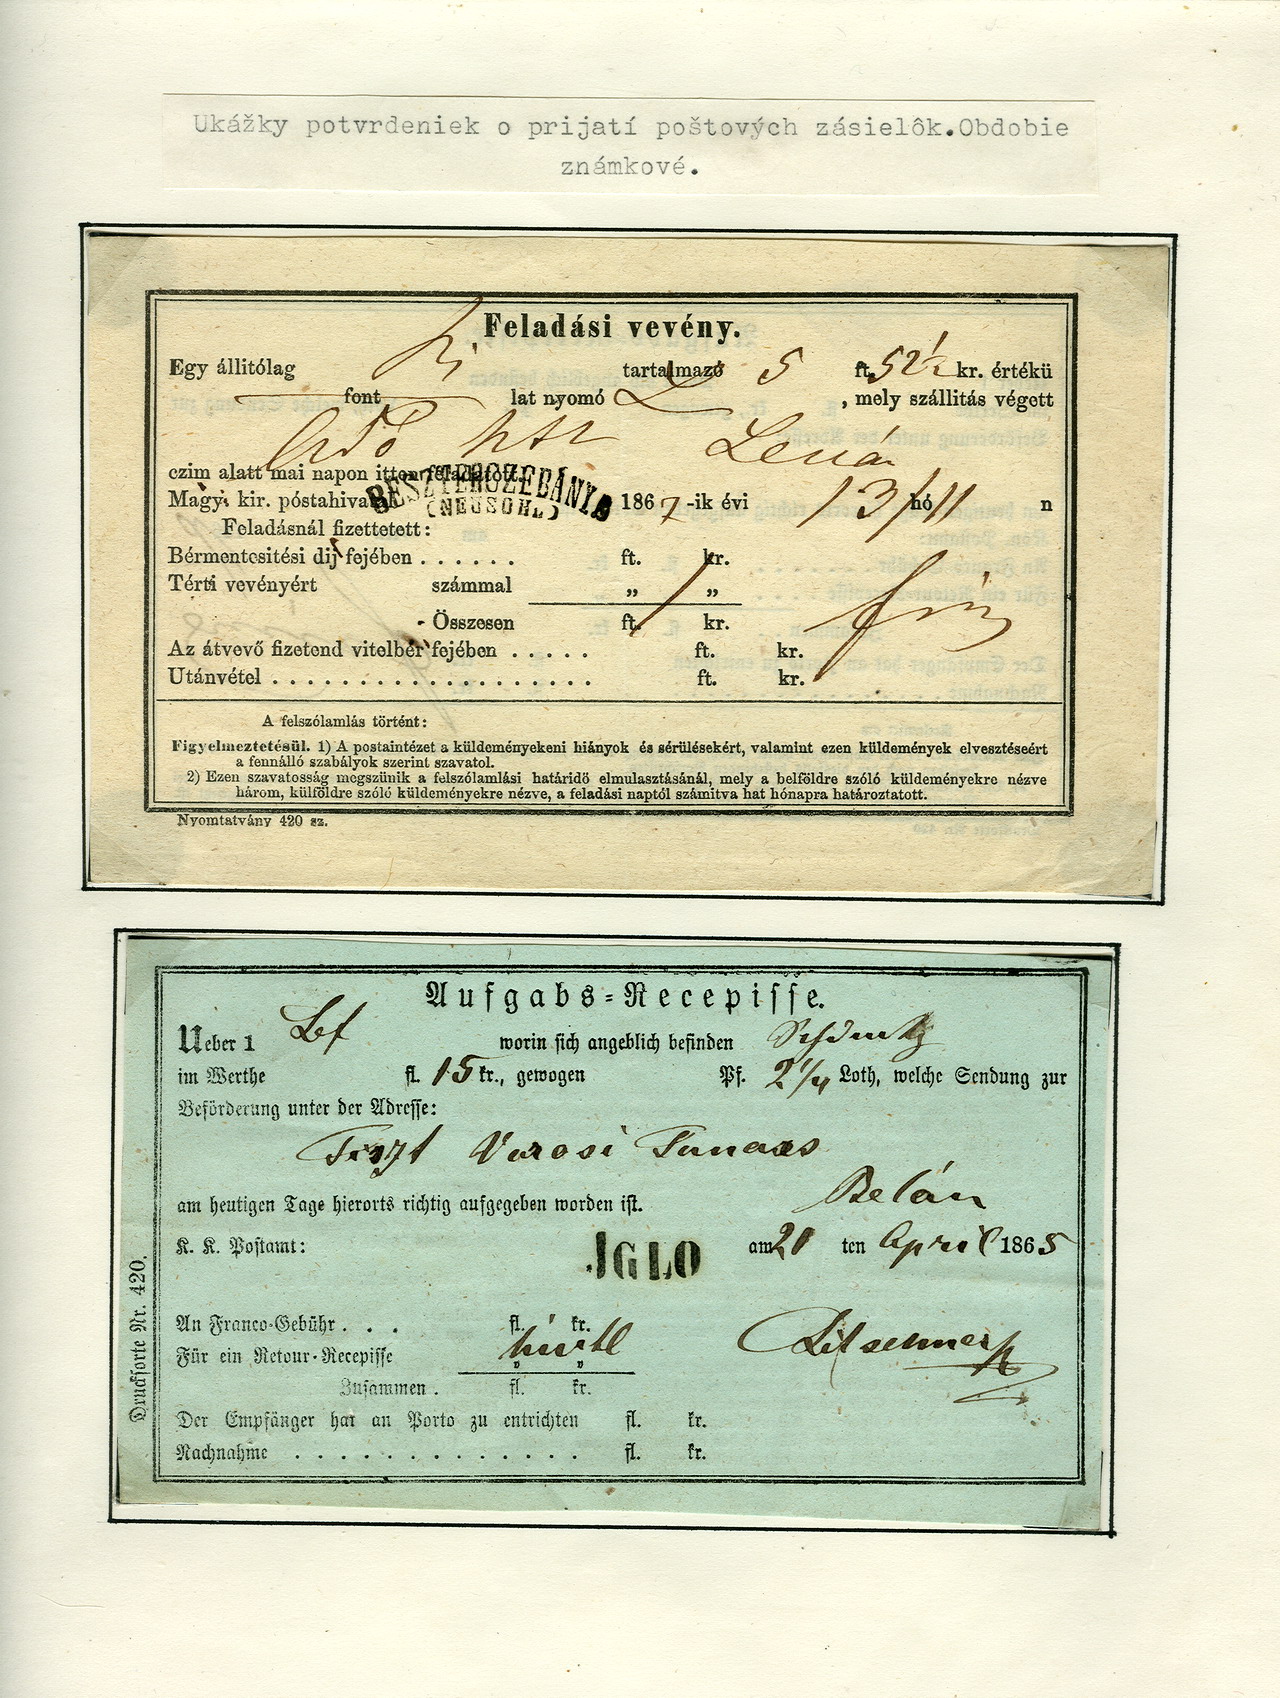 Ukážky potvrdeniek o prijatí poštových zásielôk.Obdobie
známkové.
Feladási vevény.
Egy állitólag tartalmazó 5 ft. 52½ kr. értékü
font lat nyomó , mely szállitás végett
Lena
czim alatt mai napon itten feladatott.
Magy. kir. póstahivatal BESZTERCZEBÁNYA 1867-ik évi 13/11 hó n
(NEUSOHL)
Feladásnál fizettetett:
Bérmentesitési dij fejében . . . . . . ft. kr.
Térti vevényért számmal „ „
Összesen ft. kr.
Az átvevő fizetend vitelbér fejében . . . . . ft. kr.
Utánvétel . . . . . . . . . . . . . . . . . . . ft. kr.
A felszólamlás történt:
Figyelmeztetésül. 1) A postaintézet a küldeményekeni hiányok és sérülésekért, valamint ezen küldemények elvesztéseért
a fennálló szabályok szerint szavatol.
2) Ezen szavatosság megszünik a felszólamlási határidő elmulasztásánál, mely a belföldre szóló küldeményekre nézve
három, külföldre szóló küldeményekre nézve, a feladási naptól számitva hat hónapra határoztatott.
Nyomtatvány 420 sz.
Aufgabs-Recepisse.
Ueber 1 worin sich angeblich befinden
im Werthe fl. 15 kr., gewogen Pf. 2¼ Loth, welche Sendung zur
Beförderung unter der Adresse:
Tiszt Varosi Tanacs
Belán
am heutigen Tage hierorts richtig aufgegeben worden ist.
K. K. Postamt: IGLO am 20 ten April 1865
An Franco-Gebühr . . . fl. kr.
Für ein Retour-Recepisse „ „
Zusammen . fl. kr.
Der Empfänger hat an Porto zu entrichten fl. kr.
Nachnahme . . . . . . . . . . . . . fl. kr.
Drucksorte Nr. 420.